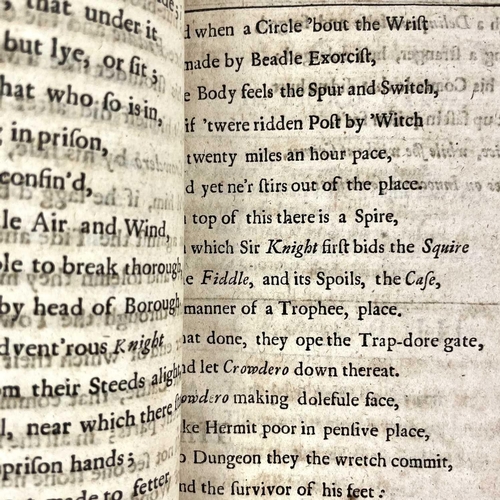 that under it
but lye, or ſit ;
hat who ſo is in,
in priſon,
confin'd,
le Air and Wind,
le to break thorough
by head of Borough
dvent'rous Knight
m their Steeds alight
near which there
priſon hands ;
made to fetter,
d when a Circle 'bout the Wriſt
made by Beadle Exorciſt,
e Body feels the Spur and Switch,
if 'twere ridden Poſt by 'Witch
twenty miles an hour pace,
d yet ne'r ſtirs out of the place.
top of this there is a Spire,
which Sir Knight firſt bids the Squire
e Fiddle, and its Spoils, the Caſe,
manner of a Trophee, place.
hat done, they ope the Trap-dore gate,
nd let Crowdero down thereat.
owdero making dolefule face,
ke Hermit poor in penſive place,
o Dungeon they the wretch commit,
nd the ſurvivor of his feet :